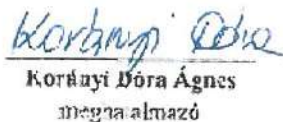 Korányi Dóra
Korányi Dóra Ágnes
meghatalmazó